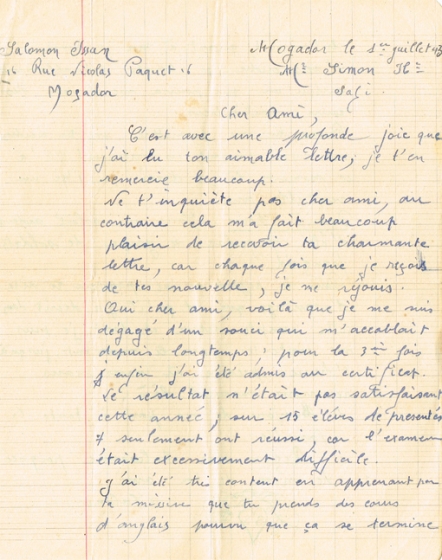 Salomon Issan
16 Rue Nicolas Paquet 16
Mogador
Mogador le 1er juillet
Mr Simon
Safi.
Cher Ami,
C'est avec une profonde joie que
j'ai lu ton aimable lettre, je t'en
remercie beaucoup.
Ne t'inquiète pas cher ami, au
contraire cela m'a fait beaucoup
plaisir de recevoir ta charmante
lettre, car chaque fois que je reçois
de tes nouvelle, je me réjouis.
Oui cher ami, voilà que je me suis
dégagé d'un souci qui m'accablait
depuis longtemps; pour la 3è fois
enfin j'ai été admis au certificat.
Le résultat n'était pas satisfaisant
cette année, sur 15 élèves de présentés
7 seulement ont réussi, car l'examen
était excessivement difficile.
J'ai été très content en apprenant par
ta missive que tu prends des cours
d'anglais pourvu que ça se termine